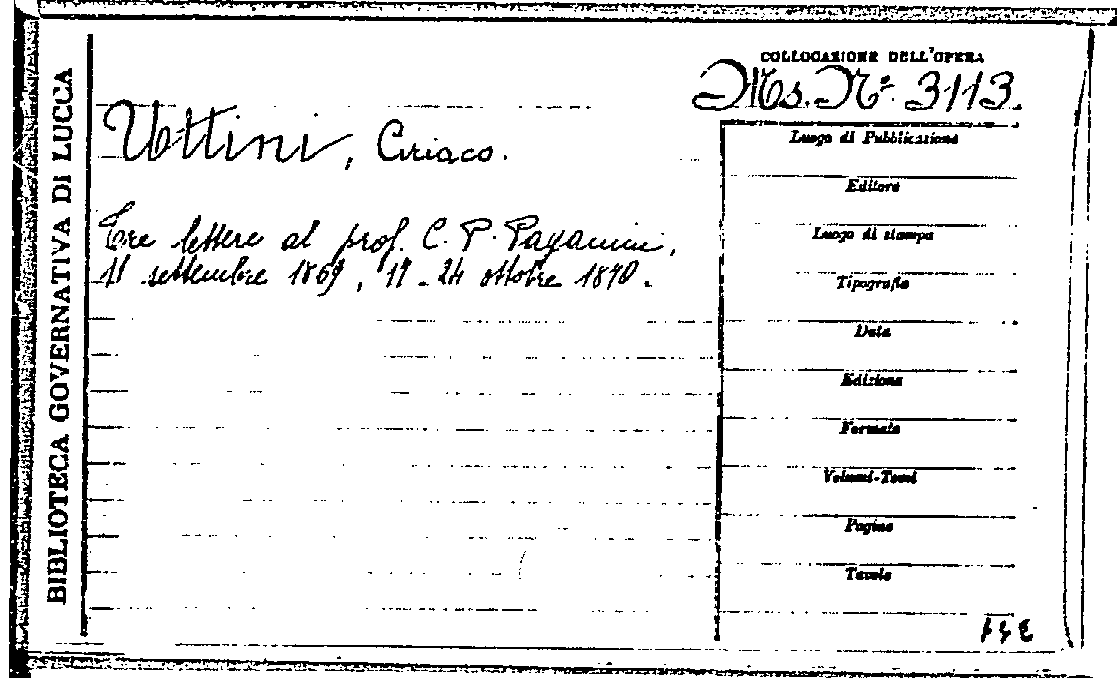 BIBLIOTECA GOVERNATIVA DI LUCCA
COLLOCAZIONE DELL'OPERA
Ms. N° 3113.
Uttini, Ciriaco.
Tre lettere al prof. C. P. Paganini,
11 settembre 1869, 17 - 24 ottobre 1870.
Luogo di Pubblicazione
Editore
Luogo di stampa
Tipografia
Data
Edizione
Formato
Volumi-Tomi
Pagine
Tavole